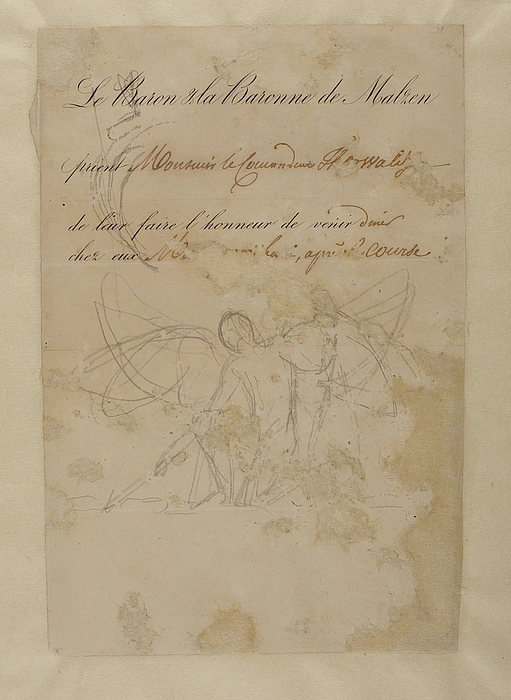 Le Baron & la Baronne de Malzen
prient Monsieur le Comandeur
de leur faire l'honneur de venir diner
chez eux , après course